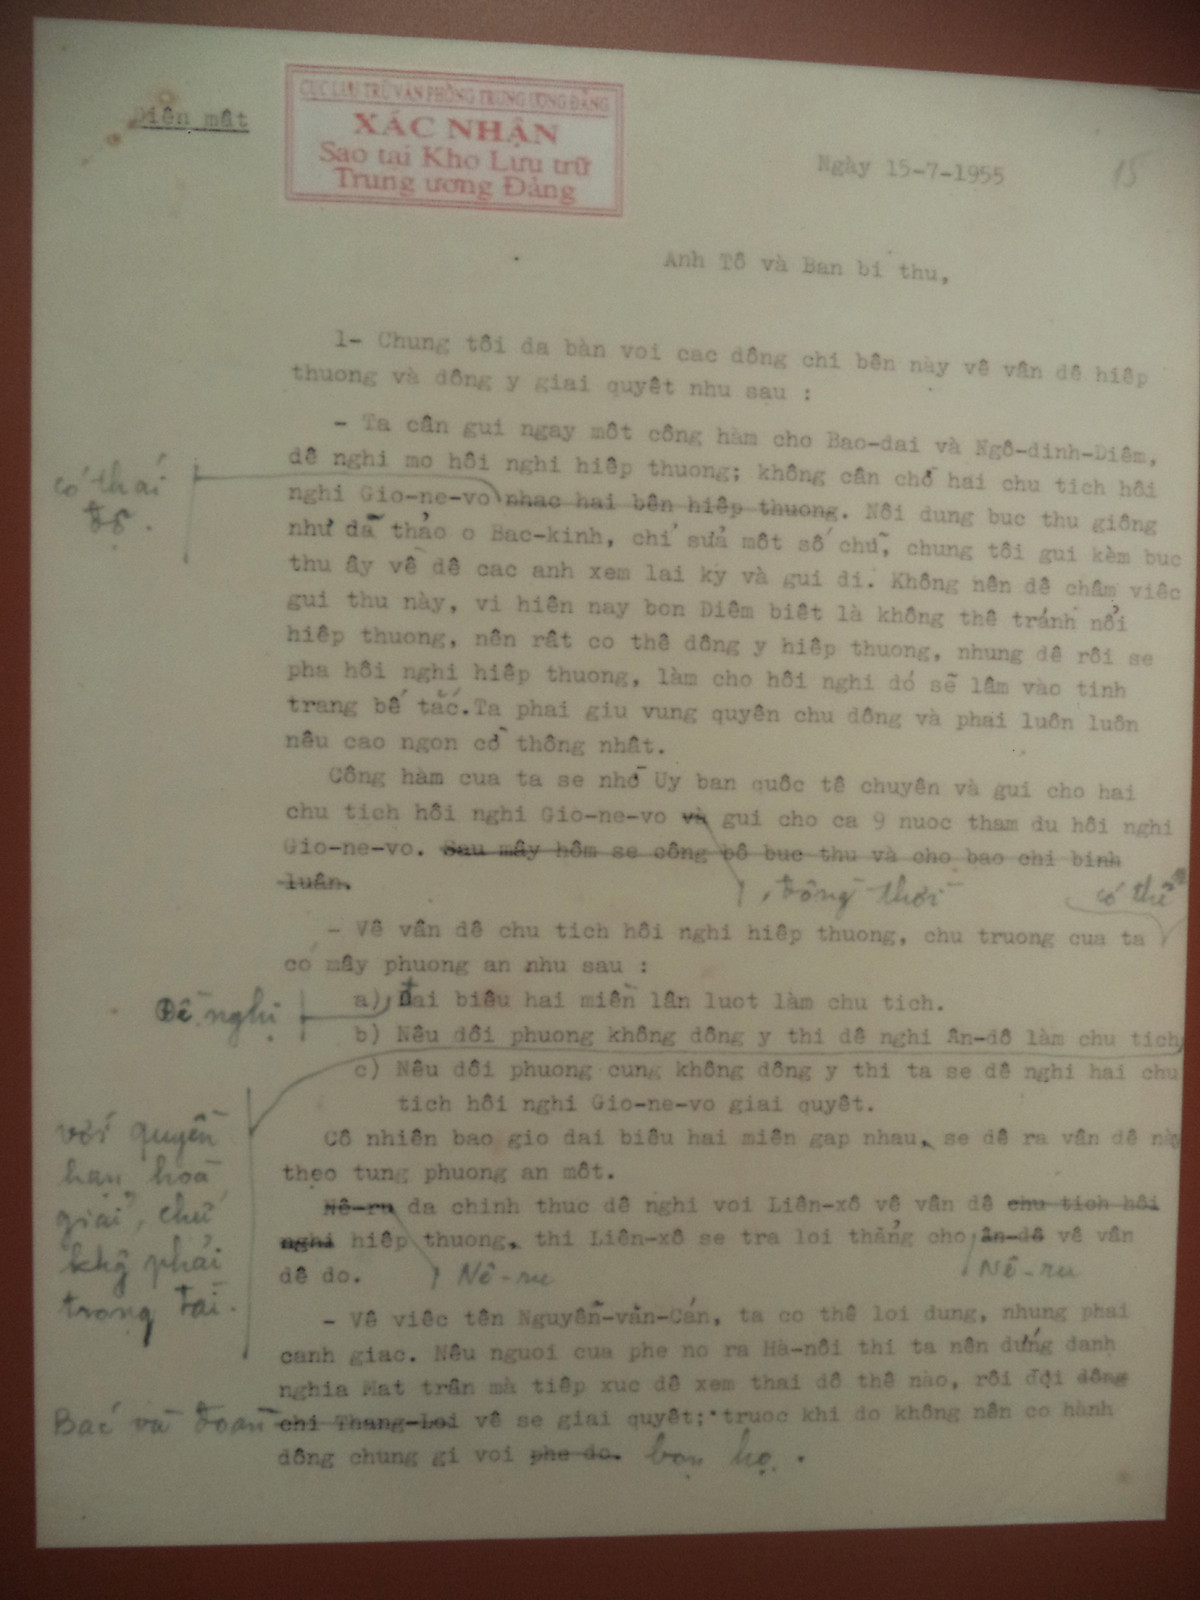 Điện mật
CỤC LƯU TRỮ VĂN PHÒNG TRUNG ƯƠNG ĐẢNG
XÁC NHẬN
Sao tại Kho Lưu trữ
Trung ương Đảng
Ngày 15-7-1955
15
Anh Tô và Ban bi thu,
1- Chung tôi da bàn voi cac dông chi bên này vê vân dê hiêp
thuong và dông y giai quyêt nhu sau :
- Ta cân gui ngay môt công hàm cho Bao-dai và Ngô-dinh-Diêm,
dê nghi mo hôi nghi hiêp thuong; không cân chờ hai chu tich hôi
có thái
độ.
nghi Gio-ne-vo nhac hai bên hiêp thuong. Nôi dung buc thu giông
như đã thảo o Bac-kinh, chỉ sửa môt số chữ, chung tôi gui kèm buc
thu ây về dê cac anh xem lai kỹ và gui di. Không nên dê châm viêc
gui thu này, vi hiên nay bon Diêm biêt là không thê tránh nổi
hiêp thuong, nên rât co thê dông y hiêp thuong, nhung dê rôi se
pha hôi nghi hiêp thuong, làm cho hôi nghi đó sẽ lâm vào tinh
trang bế tắc.Ta phai giu vung quyên chu dông và phai luôn luôn
nêu cao ngon cờ thông nhât.
Công hàm cua ta se nhờ Uy ban quôc tê chuyên và gui cho hai
chu tich hôi nghi Gio-ne-vo và gui cho ca 9 nuoc tham du hôi nghi
Gio-ne-vo. Sau mây hôm se công bô buc thu và cho bao chi binh
luân.
, đồng thời
có thể
- Vê vân dê chu tich hôi nghi hiêp thuong, chu truong cua ta
có mây phuong an nhu sau :
Đề nghị
a) Đai biêu hai miền lân luot làm chu tich.
b) Nêu dôi phuong không dông y thi dê nghi ân-dô làm chu tich
c) Nêu dôi phuong cung không dông y thi ta se dê nghi hai chu
tich hôi nghi Gio-ne-vo giai quyêt.
với quyền
hạn hoà
giải, chứ
khg phải
trọng tài.
Cô nhiên bao gio dai biêu hai miên gap nhau, se dê ra vân dê này
theo tung phuong an môt.
Nê-ru da chinh thuc dê nghi voi Liên-xô vê vân dê chu tich hôi
nghi hiêp thuong, thi Liên-xô se tra loi thẳng cho ân-dô vê vân
dê do.
Nê-ru
Nê-ru
- Vê viêc tên Nguyễn-văn-Cán, ta co thê loi dung, nhung phai
canh giac. Nêu nguoi cua phe no ra Hà-nôi thi ta nên đứng danh
nghia Mat trân mà tiêp xuc dê xem thai dô thê nào, rôi đợi dông
Bác và đoàn
chi Thang-Loi vê se giai quyêt; truoc khi do không nên co hành
dông chung gi voi phe do. bọn họ.